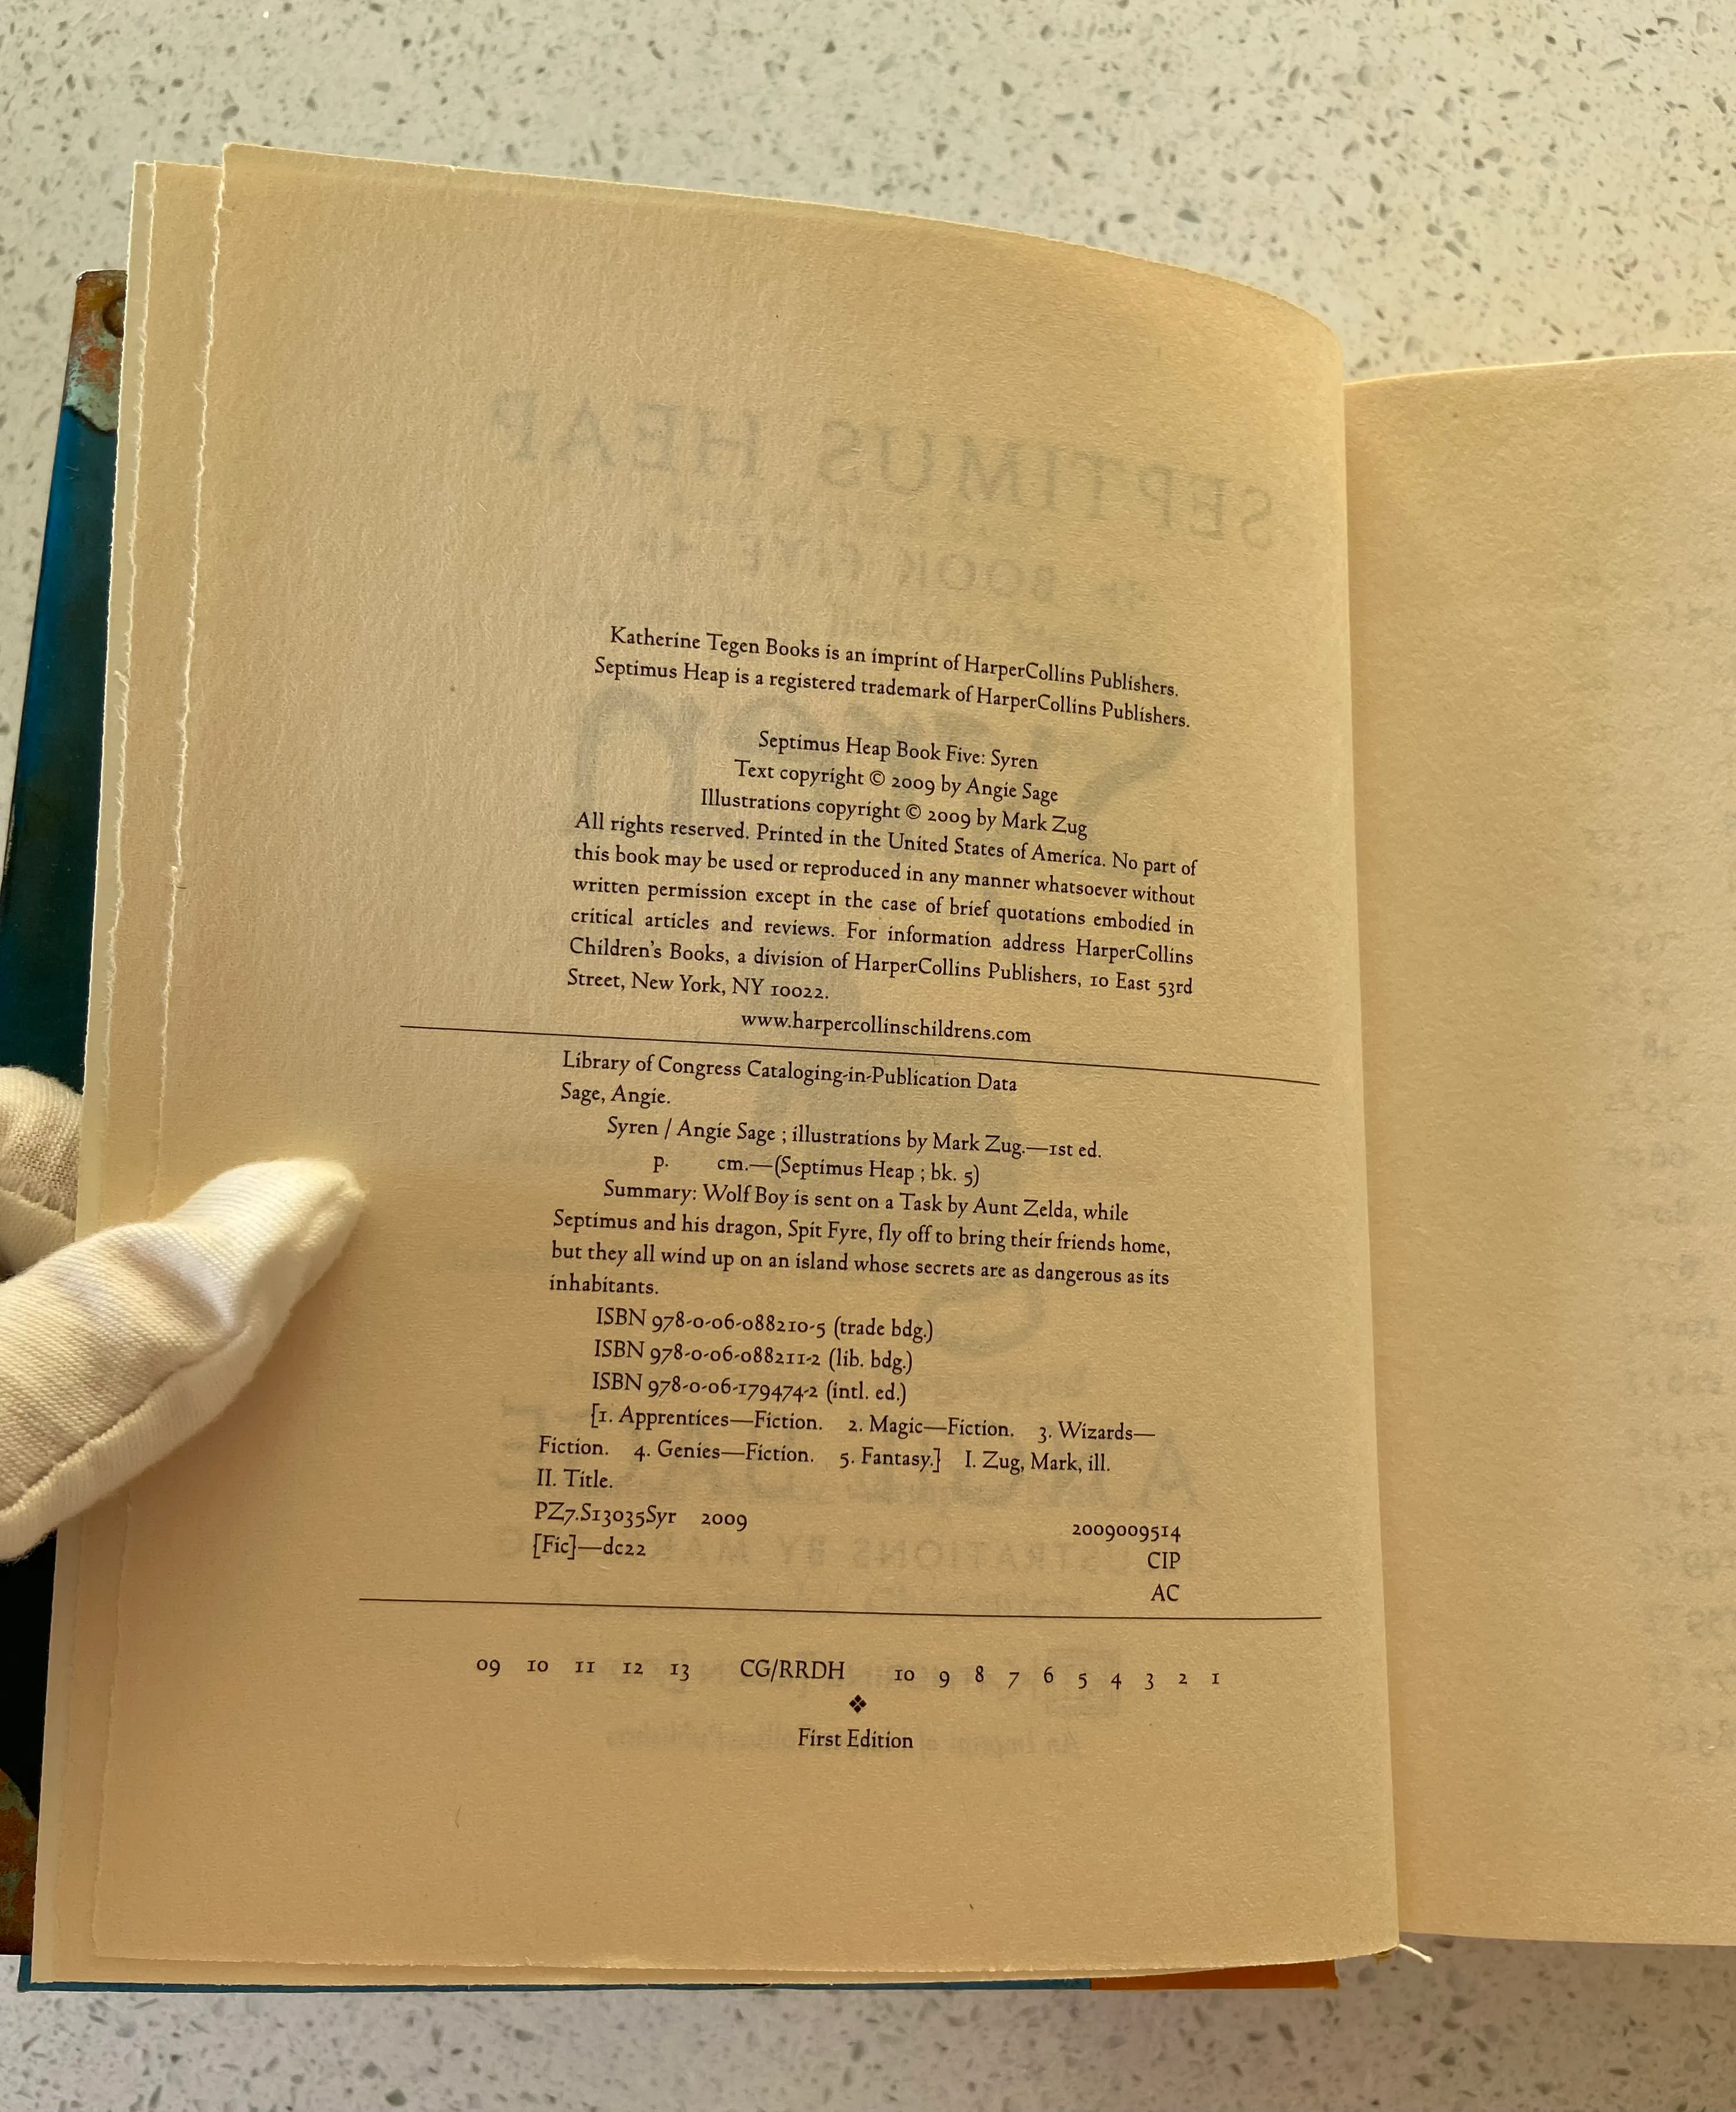 Katherine Tegen Books is an imprint of HarperCollins Publishers.
Septimus Heap is a registered trademark of HarperCollins Publishers.
Septimus Heap Book Five: Syren
Text copyright © 2009 by Angie Sage
Illustrations copyright © 2009 by Mark Zug
All rights reserved. Printed in the United States of America. No part of
this book may be used or reproduced in any manner whatsoever without
written permission except in the case of brief quotations embodied in
critical articles and reviews. For information address HarperCollins
Children's Books, a division of HarperCollins Publishers, 10 East 53rd
Street, New York, NY 10022.
www.harpercollinschildrens.com
Library of Congress Cataloging-in-Publication Data
Sage, Angie.
Syren / Angie Sage ; illustrations by Mark Zug.—1st ed.
p. cm.—(Septimus Heap ; bk. 5)
Summary: Wolf Boy is sent on a Task by Aunt Zelda, while
Septimus and his dragon, Spit Fyre, fly off to bring their friends home,
but they all wind up on an island whose secrets are as dangerous as its
inhabitants.
ISBN 978-0-06-088210-5 (trade bdg.)
ISBN 978-0-06-088211-2 (lib. bdg.)
ISBN 978-0-06-179474-2 (intl. ed.)
[1. Apprentices—Fiction. 2. Magic—Fiction. 3. Wizards—
Fiction. 4. Genies—Fiction. 5. Fantasy.] I. Zug, Mark, ill.
II. Title.
PZ7.S13035Syr 2009 2009009514
[Fic]—dc22 CIP
AC
09 10 11 12 13 CG/RRDH 10 9 8 7 6 5 4 3 2 1
❖
First Edition